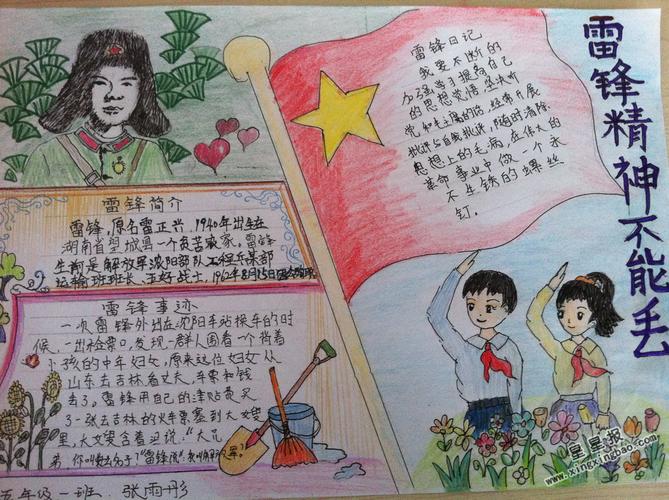 雷锋精神不能丢
雷锋日记
我要不断的
加强学习提高自己
的思想觉悟,坚决听
党和毛主席的话,经常开展
批评与自我批评,随时清除
思想上的毛病,在伟大的
革命事业中做一个永
不生锈的螺丝
钉。
雷锋简介
雷锋,原名雷正兴,1940年出生在
湖南省望城县一个贫苦农家。雷锋
生前是解放军沈阳部队工程兵某部
运输班班长、五好战士,1962年8月15日
雷锋事迹
一次雷锋外出在沈阳车站换车的时
候,一出检票口,发现一群人围着一个背着
小孩的中年妇女,原来这位妇女从
山东去吉林看丈夫,车票和钱
丢了。雷锋用自己的津贴费买
了一张去吉林的火车票塞到大嫂
里,大嫂含着泪说:"大兄
弟,你叫什么名字?"雷锋说:
五年级一班 张雨彤
星星报
www.xingxingbao.com